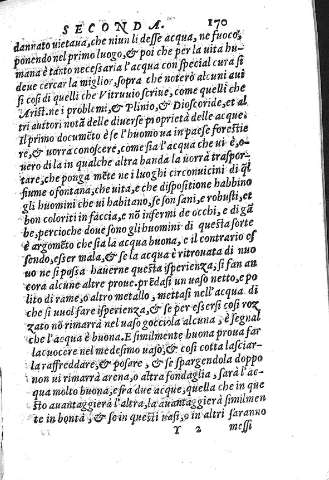 SECONDA. 170
dannato uietaua, che niun li desse acqua, ne fuoco,
ponendo nel primo luogo, & poi che per la uita hu-
mana è tanto necessaria l'acqua con special cura si
deue cercar la miglior. sopra ché noterò alcuni aui
si cosi di quelli che Vitruuio scriue, come quelli che
Arist. ne i problemi, & Plinio, & Dioscoride, et al
tri auttori notã delle diuerse proprietà delle acque.
Il primo documẽto è se l'huomo ua in paese forestie
re, & uorra conoscere, come sia l'acqua che ui è, o-
uero di la in qualche altra banda la uorrà traspor-
tare, che ponga mẽte ne i luoghi circonuicini di q̃l
fiume o fontana, che uita, e che dispositione habbino
gli huomini che ui habitano, se son sani, e robusti, et
bon coloriti in faccia, e nõ infermi de occhi, e di gã
be, percioche doue sono gli huomini di questa sorte
è argomẽto che sia la acqua buona, e il contrario es
sendo, esser mala, & se la acqua è ritrouata di nuo
uo ne si possa hauerne questa isperienza, si fan an
cora alcune altre proue. prẽdasi un uaso netto, e po
lito di rame, o altro metallo, mettasi nell'acqua di
che si uuol fare isperienza, & se per essersi cosi roz
zato nõ rimarrà nel uaso gocciola alcuna, è segnal
che l'acqua è buona. E similmente buona proua far
la cuocere nel medesimo uaso, & cosi cotta lasciar-
la raffreddare, & posare, & se spargendola doppo
non ui rimarrà arena, o altra fondaglia, sarà l'ac-
qua molto buona, e fra due acque, quella che in que
sto auantaggierà l'altra, la auantaggierà similmen
te in bontà, & se in questi uasi, o in altri saranno
Y 2 messi